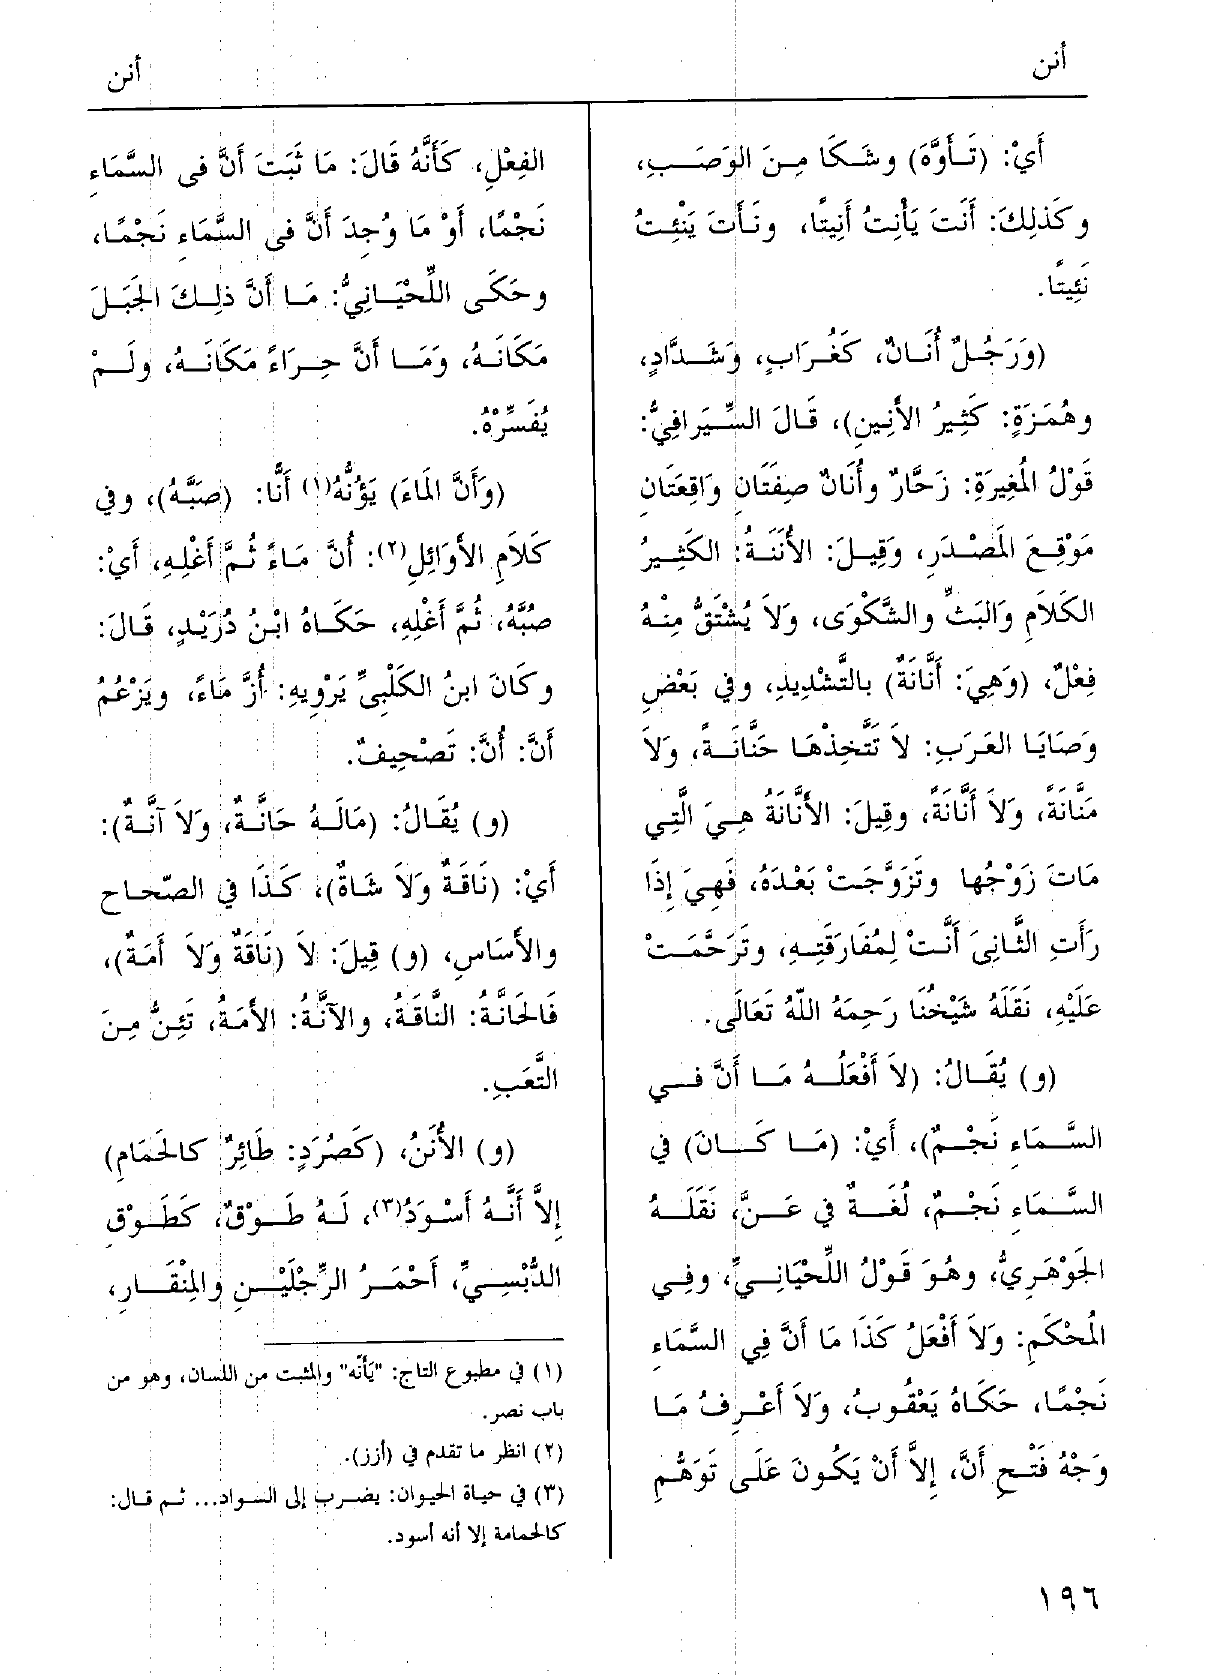 أنن
أنن
أَيْ: (تَأَوَّهَ) وشَكَا مِنَ الوَصَبِ،
وكَذلِكَ: أَنَتَ يَأْنِتُ أَنِيتًا، ونَأَتَ يَنْئِتُ
نَئِيتًا.
(وَرَجُلٌ أُنَانٌ، كَغُرَابٍ، وَشَدَّادٍ،
وهُمَزَةٍ: كَثِيرُ الأَنِينِ)، قَالَ السِّيَرافِيُّ:
قَوْلُ المُغِيرَةِ: زَحَّارٌ وأُنَانٌ صِفَتَانِ وَاقِعَتَانِ
مَوْقِعَ المَصْدَرِ، وَقِيلَ: الأُنَنَةُ: الكَثِيرُ
الكَلاَمِ وَالبَثِّ والشَّكْوَى، وَلاَ يُشْتَقُّ مِنْهُ
فِعْلٌ، (وَهِيَ: أَنَّانَةٌ) بالتَّشْدِيدِ، وفي بَعْضِ
وَصَايَا العَرَبِ: لاَ تَتَّخِذْهَا حَنَّانَةً، وَلاَ
مَنَّانَةً، وَلاَ أَنَّانَةً، وقِيلَ: الأَنَّانَةُ هِيَ الَّتِي
مَاتَ زَوْجُها وتَزَوَّجَتْ بَعْدَهُ، فَهِيَ إِذَا
رَأَتِ الثَّانِيَ أَنَّتْ لِمُفَارَقَتِهِ، وتَرَحَّمَتْ
عَلَيْهِ، نَقَلَهُ شَيْخُنَا رَحِمَهُ اللّهُ تَعَالَى.
(و) يُقَالُ: (لاَ أَفْعَلُهُ مَا أَنَّ فِي
السَّمَاءِ نَجْمٌ)، أَيْ: (مَا كَانَ) في
السَّمَاءِ نَجْمٌ، لُغَةٌ في عَنَّ، نَقَلَهُ
الجَوْهَرِيُّ، وهُوَ قَوْلُ اللِّحْيَانِيِّ، وفِي
المُحْكَمِ: وَلاَ أَفْعَلُ كَذَا مَا أَنَّ فِي السَّمَاءِ
نَجْمًا، حَكَاهُ يَعْقُوبُ، وَلاَ أَعْرِفُ مَا
وَجْهُ فَتْحِ أَنَّ، إِلاَّ أَنْ يَكُونَ عَلَى تَوَهُّمِ
الفِعْلِ، كَأَنَّهُ قَالَ: مَا ثَبَتَ أَنَّ في السَّمَاءِ
نَجْمًا، أَوْ مَا وُجِدَ أَنَّ في السَّمَاءِ نَجْمًا،
وحَكَى اللِّحْيَانِيُّ: مَا أَنَّ ذلِكَ الجَبَلَ
مَكَانَهُ، وَمَا أَنَّ حِرَاءً مَكَانَهُ، ولَمْ
يُفَسِّرْهُ.
(وَأَنَّ المَاءَ) يَؤُنُّهُ(١) أَنًّا: (صَبَّهُ)، وفي
كَلاَمِ الأَوَائِلِ(٢): أُنَّ مَاءً ثُمَّ أَغْلِهِ، أَيْ:
صُبَّهُ، ثُمَّ أَغْلِهِ، حَكَاهُ ابْنُ دُرَيْدٍ، قَالَ:
وكَانَ ابنُ الكَلْبِيِّ يَرْوِيهِ: أُزَّ مَاءً، ويَزْعُمُ
أَنَّ: أُنَّ: تَصْحِيفٌ.
(و) يُقَالُ: (مَالَهُ حَانَّةٌ، وَلاَ آنَّةٌ):
أَيْ: (نَاقَةٌ وَلاَ شَاةٌ)، كَذَا في الصّحاح
والأَسَاسِ، (و) قِيلَ: لاَ (نَاقَةٌ وَلاَ أَمَةٌ)،
فَالحَانَّةُ: النَّاقَةُ، والآنَّةُ: الأَمَةُ، تَئِنُّ مِنَ
التَّعَبِ.
(و) الأُنَنُ، (كَصُرَدٍ: طَائِرٌ كالحَمَامِ)
إِلاَّ أَنَّهُ أَسْوَدُ(٣)، لَهُ طَوْقٌ، كَطَوْقِ
الدُّبْسِيِّ، أَحْمَرُ الرِّجْلَيْنِ والمِنْقَارِ،
(١) في مطبوع التاج: "يَأنّه" والمثبت من اللسان، وهو من
باب نصر.
(٢) انظر ما تقدم في (أزز).
(٣) في حياة الحيوان: يضرب إلى السواد... ثم قال:
كالحمامة إلا أنه أسود.
١٩٦